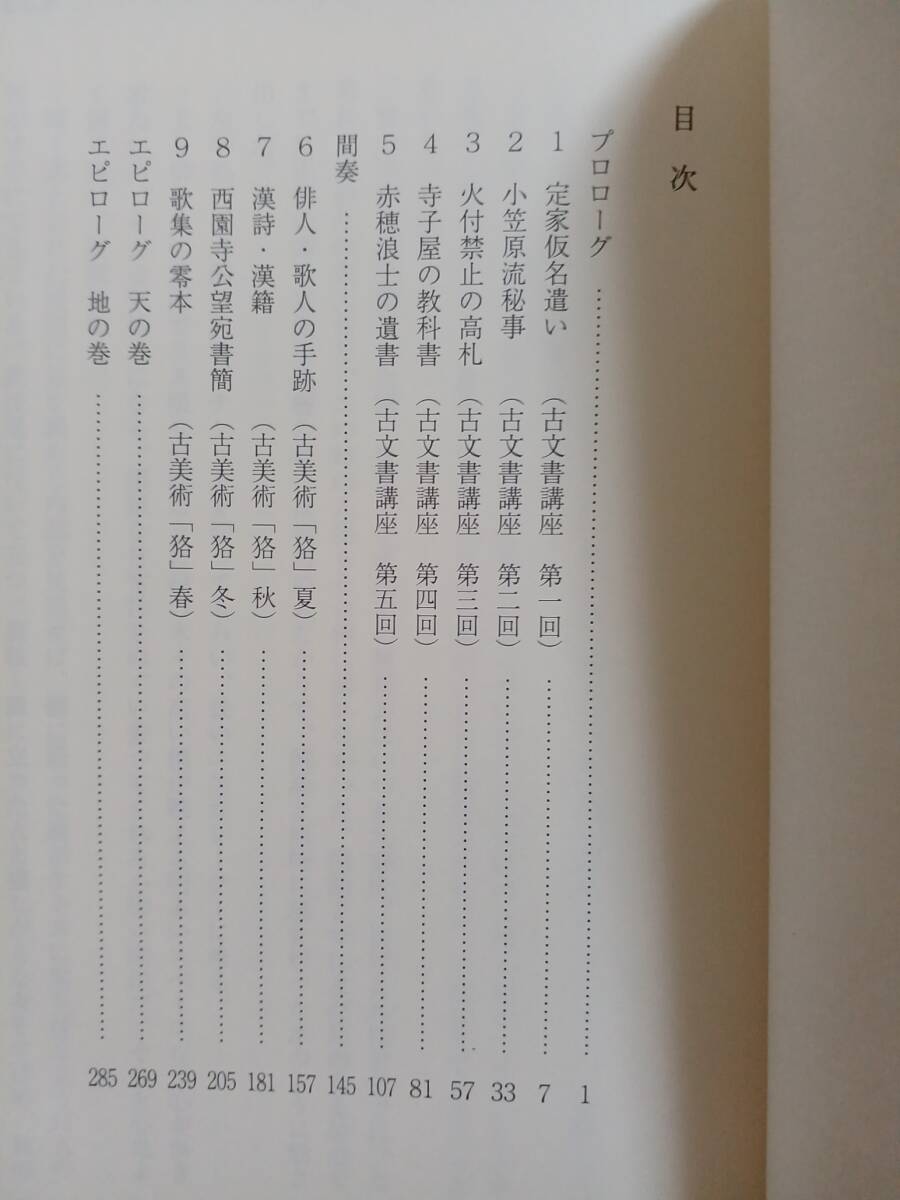 目次
プロローグ……………1
1 定家仮名遣い (古文書講座 第一回)……………7
2 小笠原流秘事 (古文書講座 第二回)……………33
3 火付禁止の高札 (古文書講座 第三回)……………57
4 寺子屋の教科書 (古文書講座 第四回)……………81
5 赤穂浪士の遺書 (古文書講座 第五回)……………107
間奏……………145
6 俳人・歌人の手跡 (古美術「狢」夏)……………157
7 漢詩・漢籍 (古美術「狢」秋)……………181
8 西園寺公望宛書簡 (古美術「狢」冬)……………205
9 歌集の零本 (古美術「狢」春)……………239
エピローグ 天の巻……………269
エピローグ 地の巻……………285